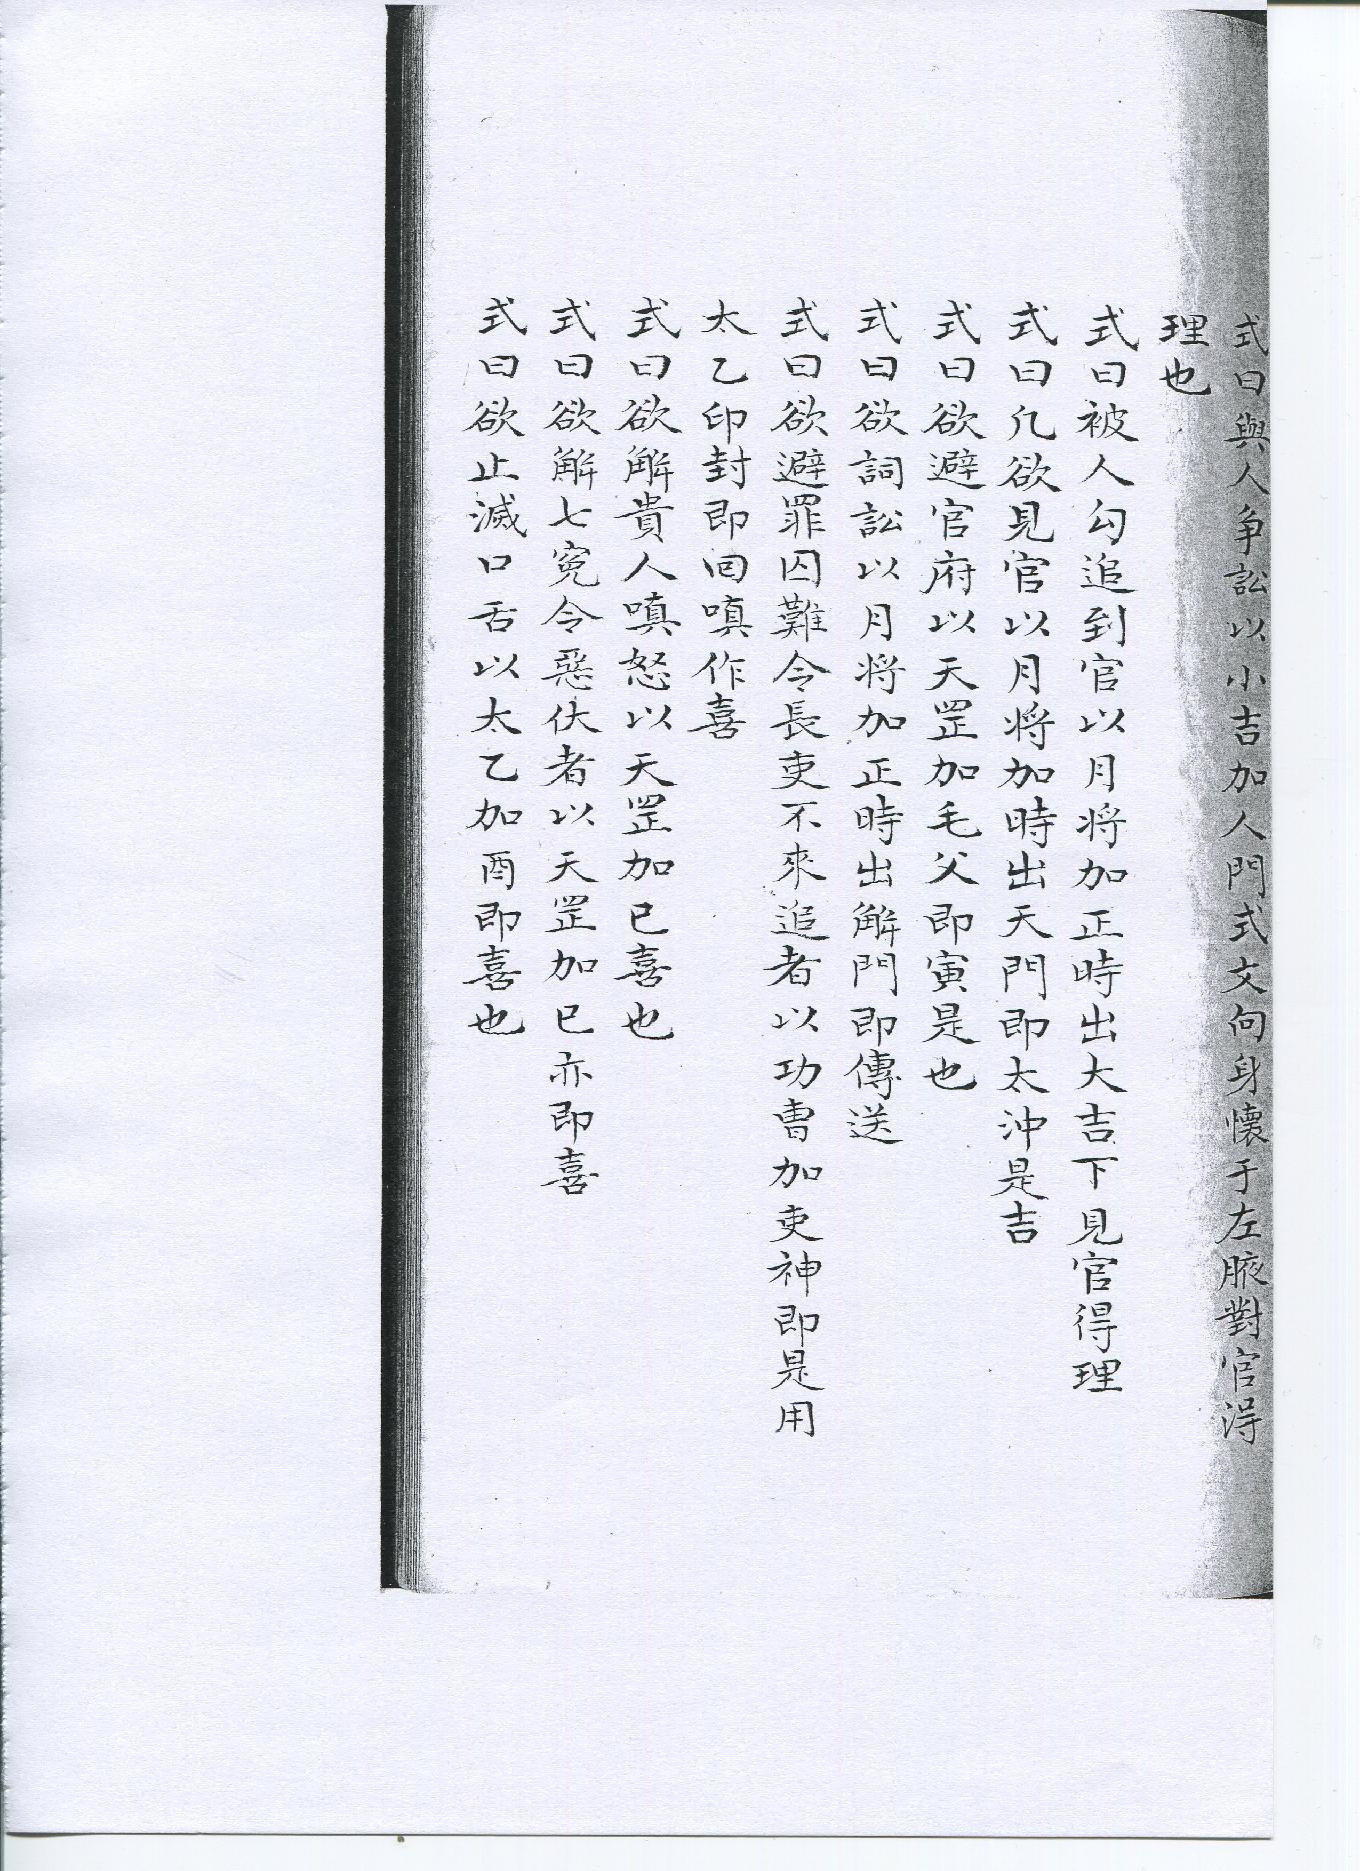 式曰與人争訟以小吉加人門式文向身懷于左腋對官淂
理也
式曰被人勾追到官以月将加正時出大吉下見官得理
式曰凢欲見官以月将加時出天門即太沖是吉
式曰欲避官府以天罡加毛父即寅是也
式曰欲詞訟以月将加正時出解門即傳送
式曰欲避罪囚難令長吏不來追者以功曺加吏神即是用
太乙印封即回嗔作喜
式曰欲解貴人嗔怒以天罡加已喜也
式曰欲解七寃令惡伏者以天罡加已亦即喜
式曰欲止滅口舌以太乙加酉即喜也